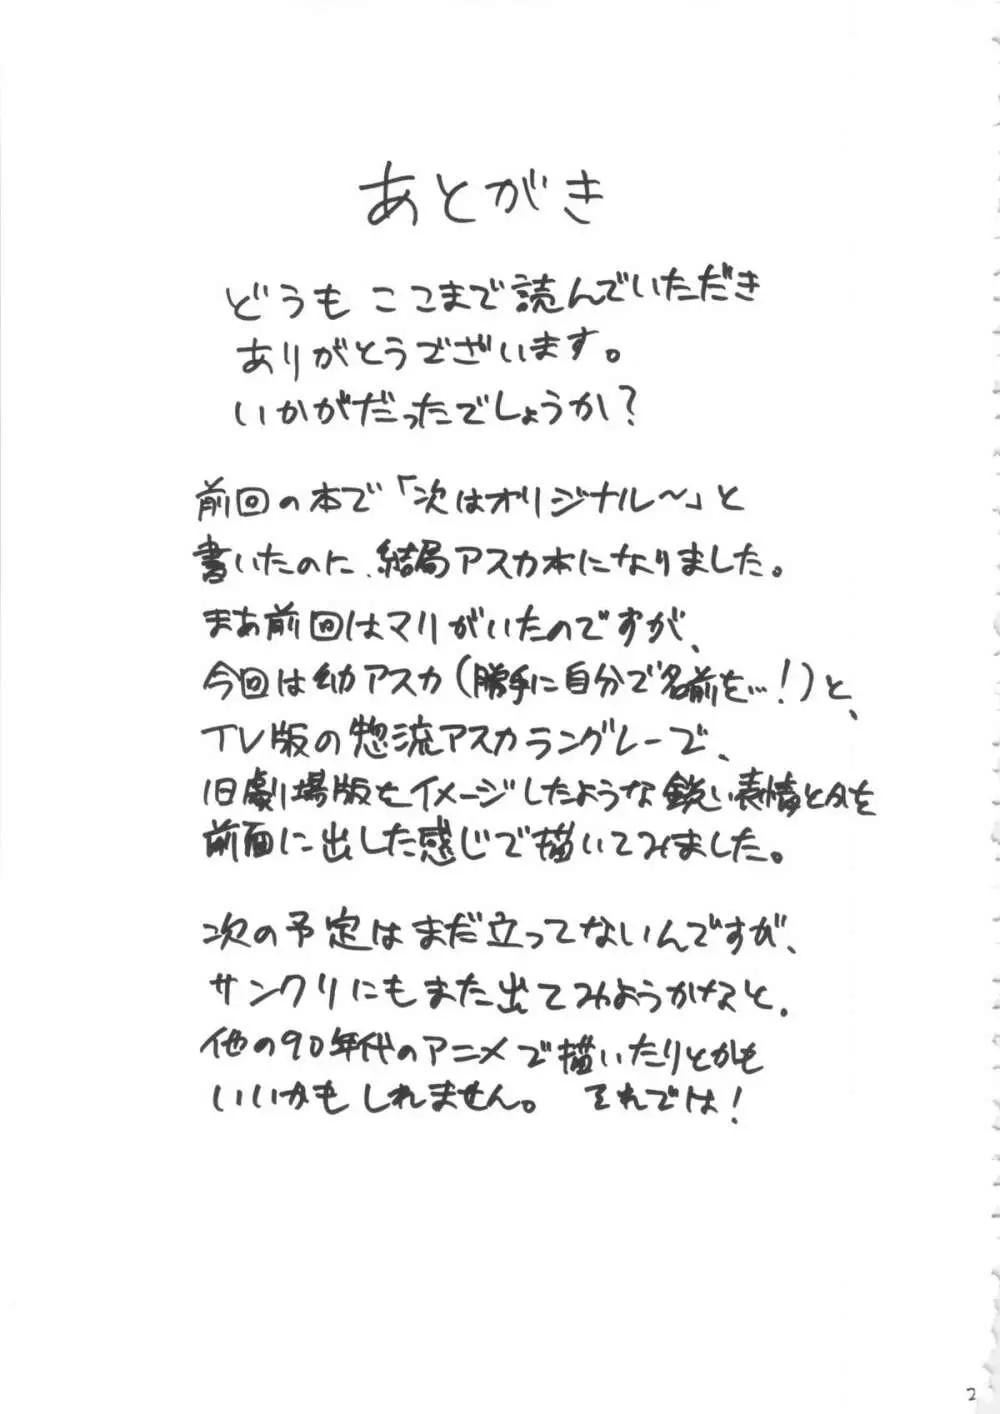 あとがき
どうも ここまで読んでいただき
ありがとうございます。
いかがだったでしょうか?
前回の本で「次はオリジナル〜」と
書いたのに、結局アスカ本になりました。
まあ前回はマリがいたのですが、
今回は幼アスカ(勝手に自分で名前を…!)と、
TV版の惣流アスカラングレーで、
旧劇場版をイメージしたような鋭い表情とかを
前面に出した感じで描いてみました。
次の予定はまだ立ってないんですが、
サンクリにもまた出てみようかなと。
他の90年代のアニメで描いたりとかも
いいかもしれません。 それでは!
2